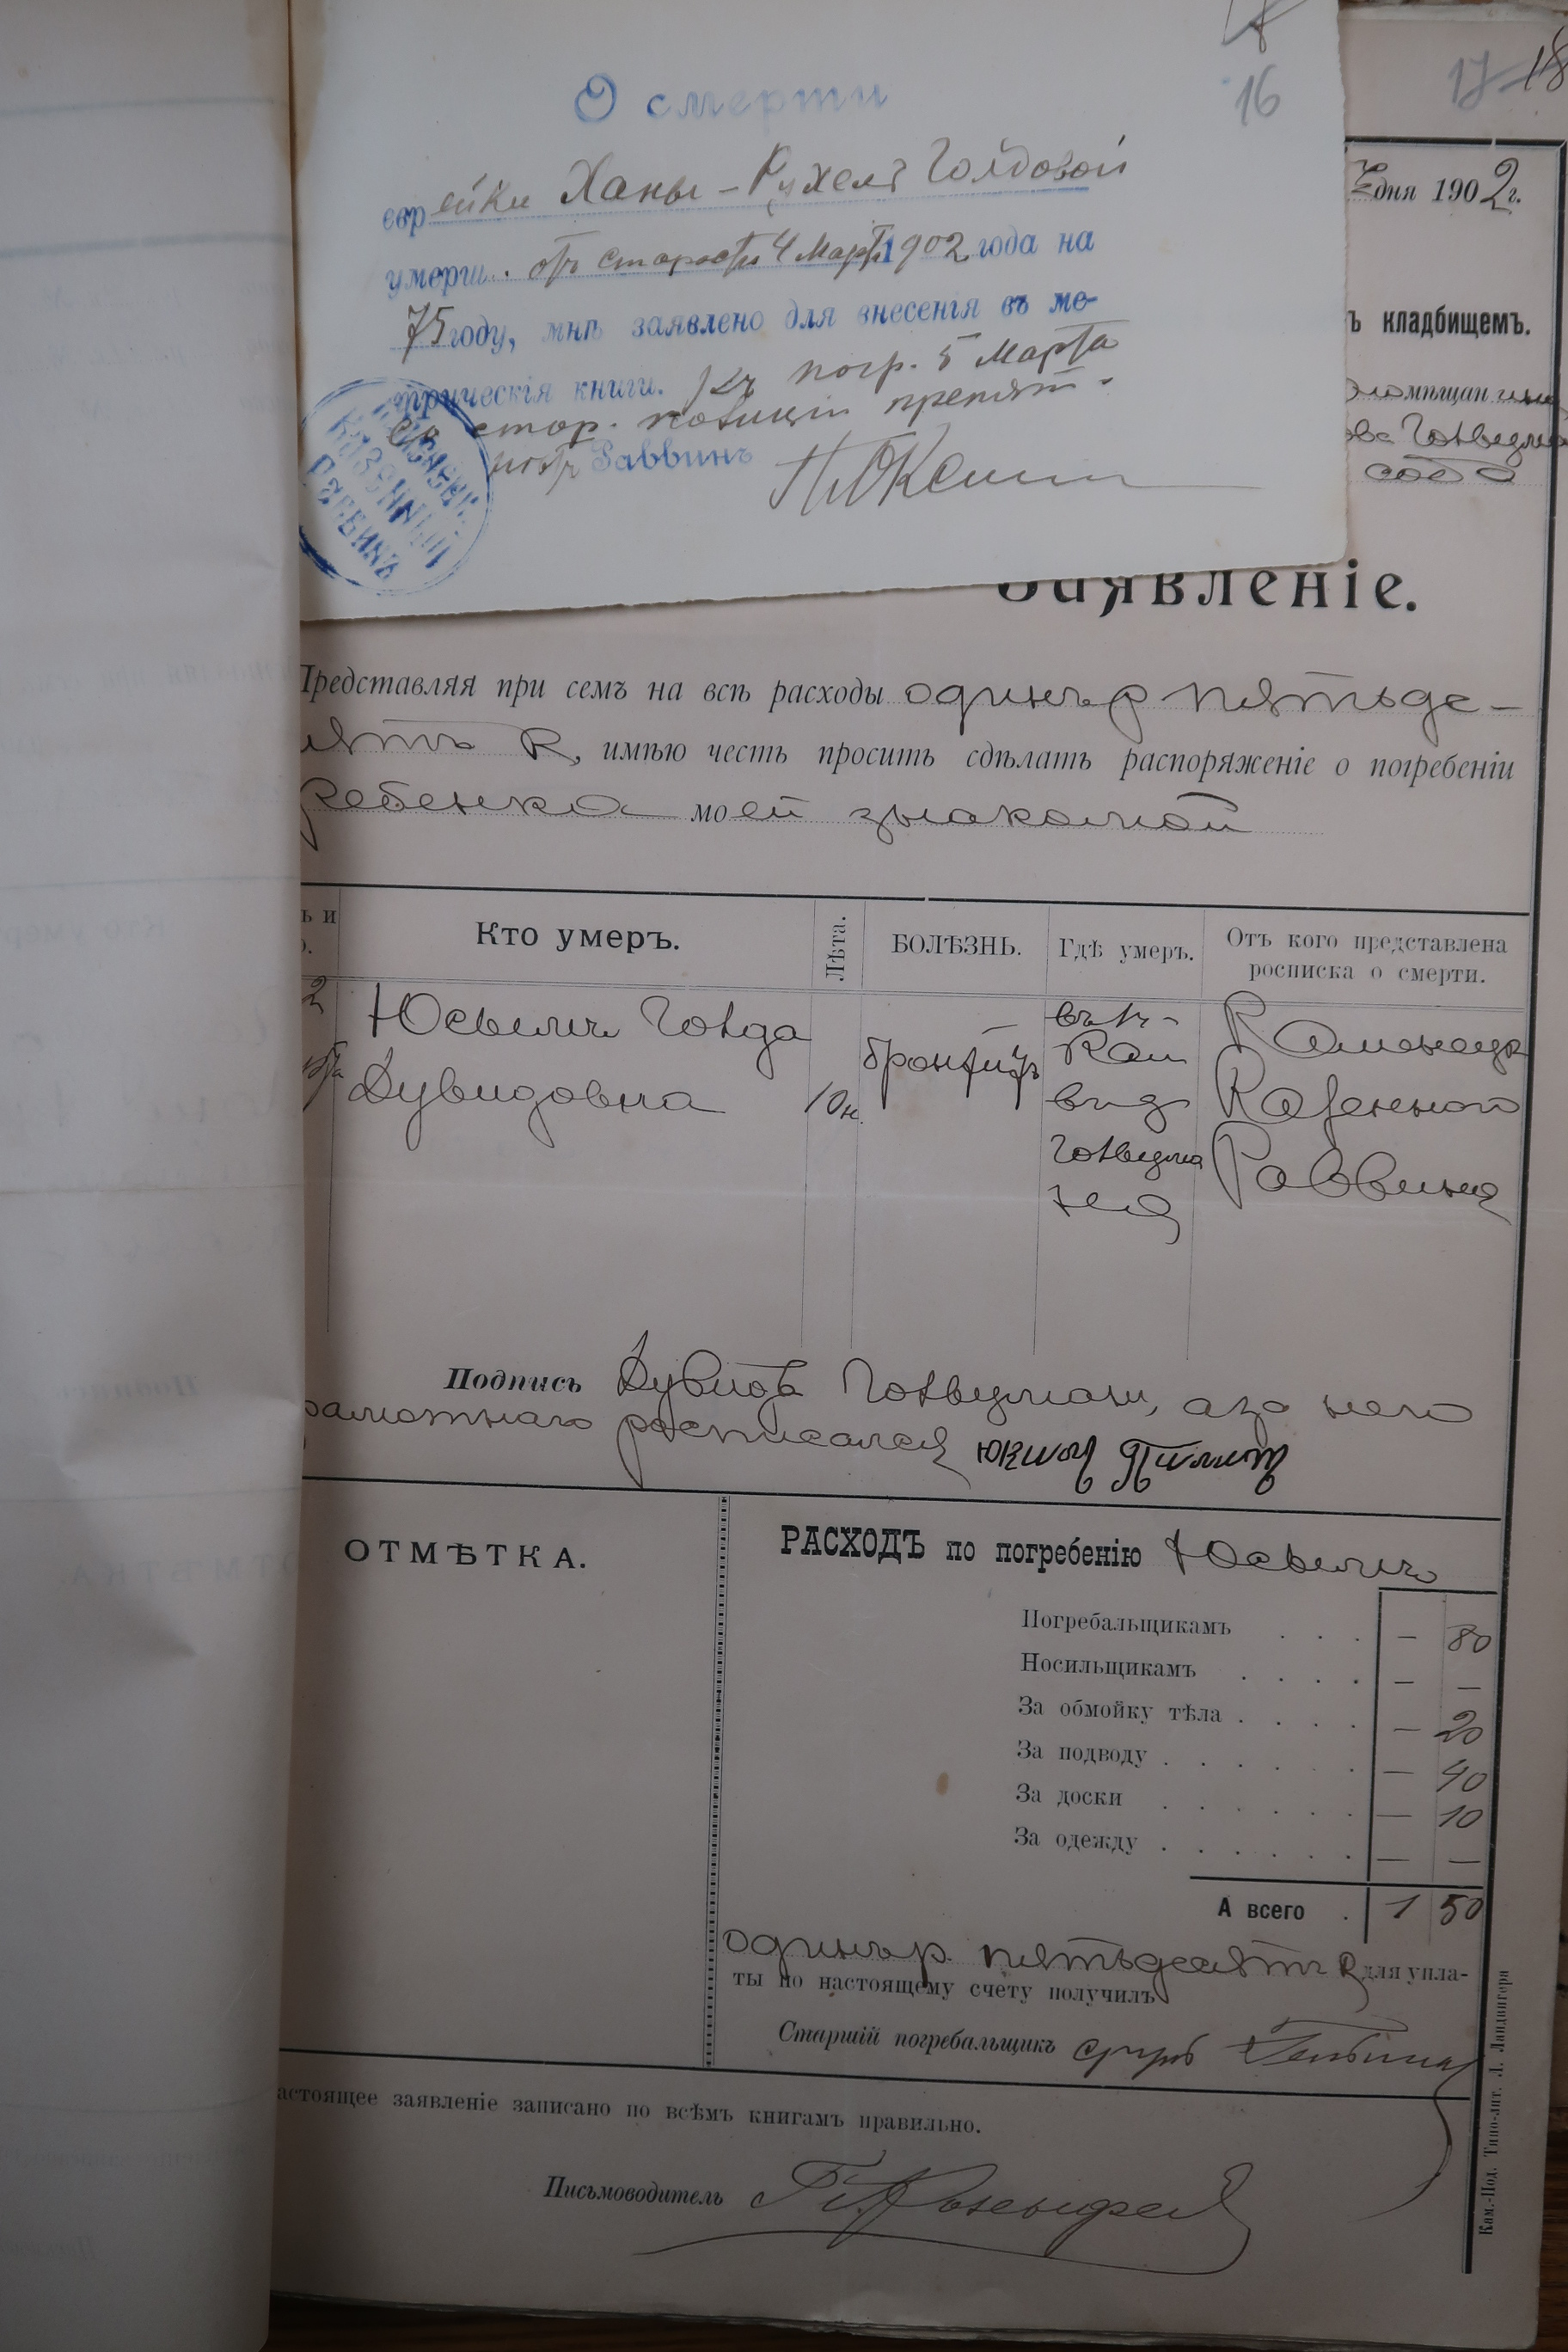 16
О смерти
еврейки Ханы-Рухель Голдовой
умерш. отъ старости 4 Марта 1902 года на
75 году, мнѣ заявлено для внесенія въ ме-
трическія книги. Къ погр. 5 Марта
со стор. полиціи препят.
нѣтъ Раввинъ
КАЗЕННЫЙ
РАВВИНЪ
17 18
дня 1902 г.
ъ кладбищемъ.
мѣщанина
Заявленіе.
Представляя при семъ на всѣ расходы одинъ р пятьде-
сятъ к, имѣю честь просить сдѣлать распоряженіе о погребеніи
ребенка моей знакомой
ь и
Кто умеръ.
Лѣта.
БОЛѢЗНЬ.
Гдѣ умеръ.
Отъ кого представлена
росписка о смерти.
2
Юсымъ Голда
Дувидовна
10 н.
бронхитъ
въ г-
Кам
Каменецк
Казенного
Раввина
Подпись Дувидъ Гольдман, а за него
рамотнаго росписался
ОТМѢТКА.
РАСХОДЪ по погребенію Юсымъ
Погребальщикамъ . . . — 80
Носильщикамъ . . . . — —
За обмойку тѣла . . . . — 20
За подводу . . . . . . — 40
За доски . . . . . . — 10
За одежду . . . . . . — —
А всего . 1 50
одинъ р. пятьдесятъ к для упла-
ты по настоящему счету получилъ
Старшій погребальщикъ
астоящее заявленіе записано по всѣмъ книгамъ правильно.
Письмоводитель
Кам.-Под. Типо-лит. Л. Ландвигера